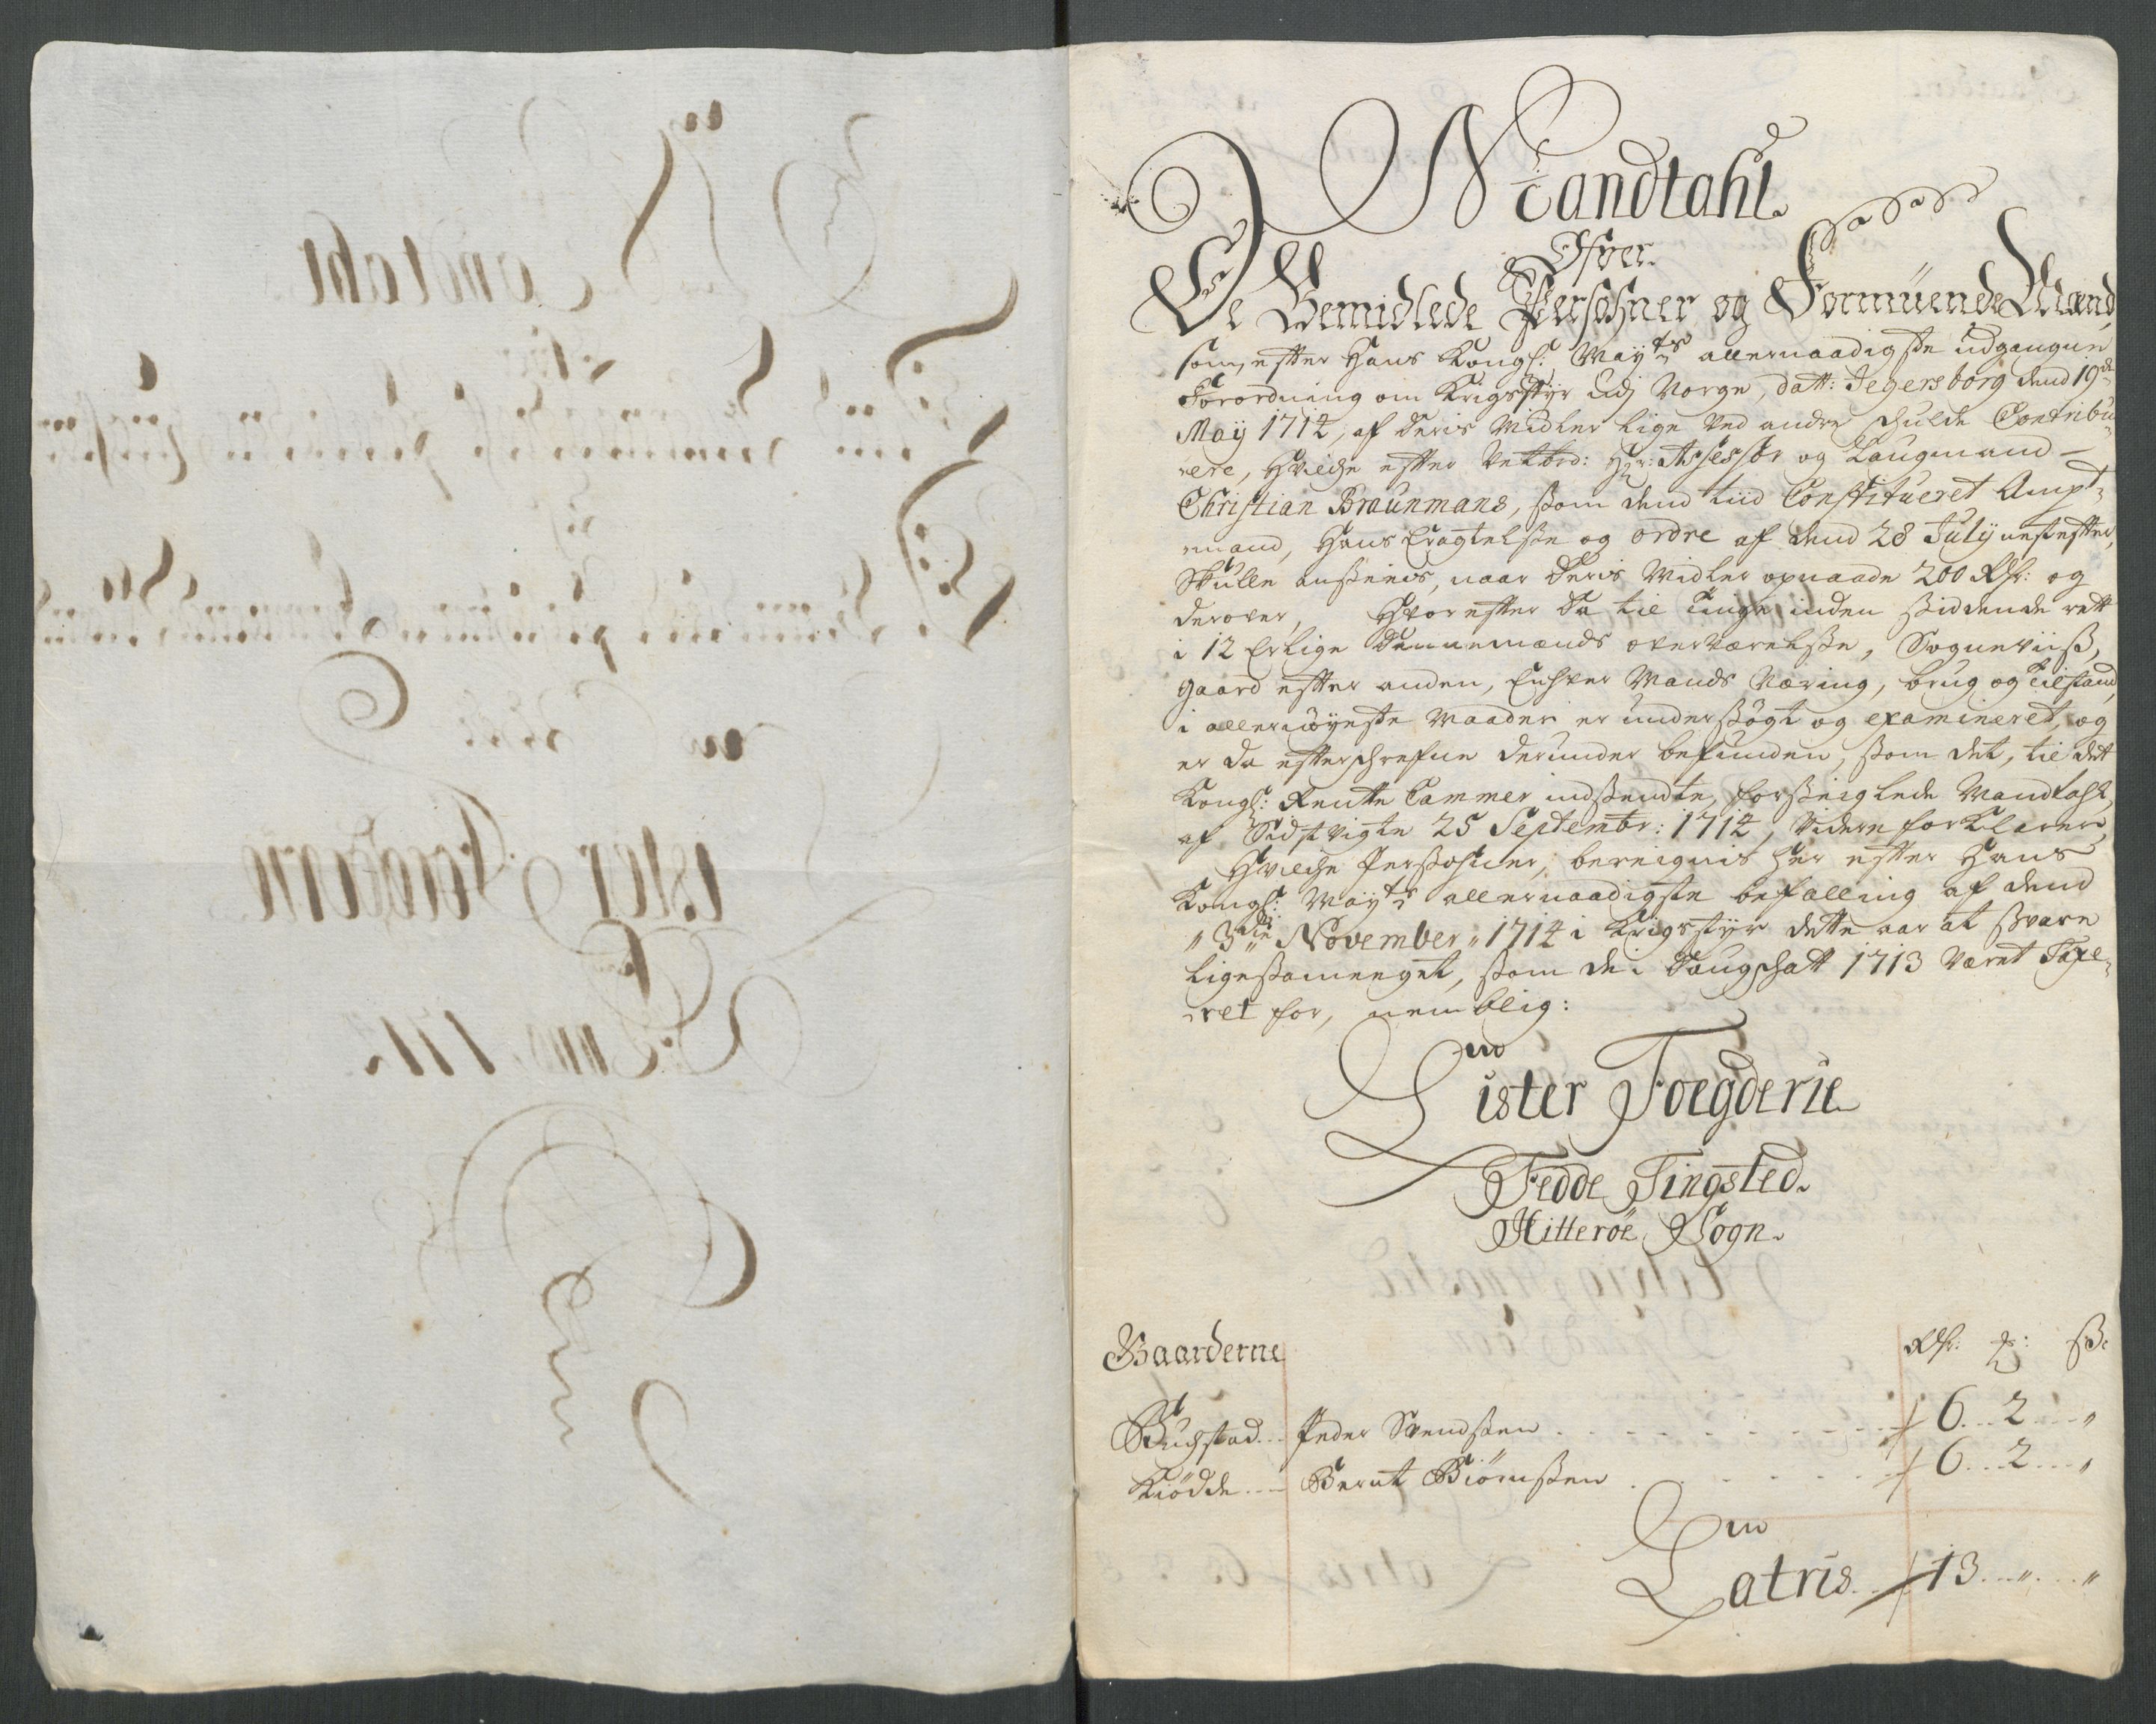 Mandtahl
Ofver
De Bemidlede Persohner og Formüende Mænd,
som, efter Hans Kongl: Mayts allernaadigste udgangne
Forordning om Krigsstyr udj Norge, datt: Jegersborg dend 19de
Maÿ 1712, af deris Midler lige ved andre skulde Contribu-
ere, Hvilche efter Velbrd: Hr: Assessor og Laugmand
Christian Braunmans, som dend tiid Constitueret Ampt-
mand, Hans Eragtelsse og ordre af dend 28 Julÿ nestefter,
Skulle ansseeis, naar deris Midler opnaade 200 Rdr: og
derover, Hvorefter da til Tinge inden siddende rett
i 12 Erlige Dannemænds overværelsse, Sogneviiss,
gaard efter anden, Enhver Mands Næring, brug og tilstand
i allernøyeste Maader er undersøgt og examineret, og
er da efterschrefne derunder befunden, som det, til det
Kongl: Rente Cammer indssendte, forsseiglede Mandtahl,
af Sidstvigte 25 Septembr: 1712, videre forklarer,
Hvilche Perssohner, bereignis her efter Hans
Kongl: Mayts allernaadigste befalling af dend
" 3die November " 1712 i Krigsstyr dette aar at svare
ligessameeget, som de i Dougschatt 1713 været Taxe-
ret for, nemblig:
Lister Foegderie
Fedde Tingsted.
Hitteröe Sogn.
Gaarderne Rdr: ß:
Büchstad Peder Svendssen 6 2 "
Kiödde Bernt Biörnssen 6 2 "
Latris 13 " "